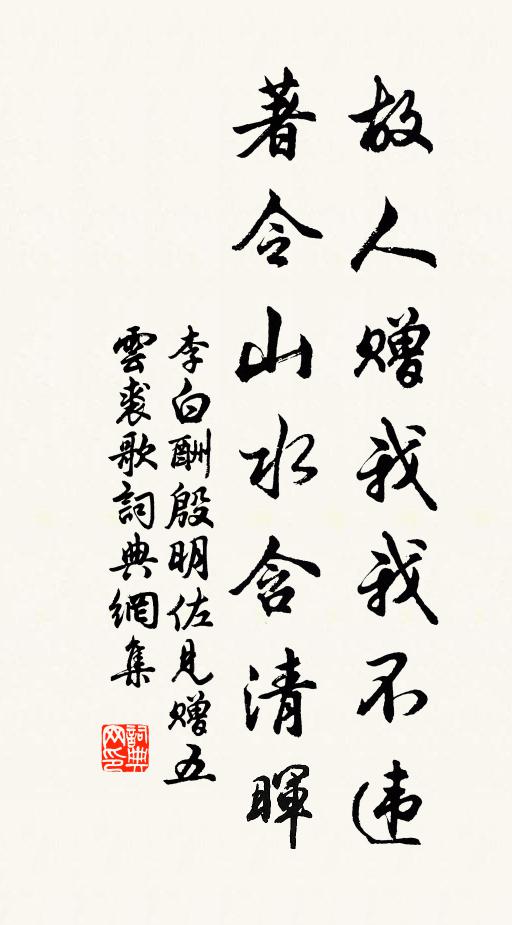 故人赠我我不违
著令山水含清暉
李白酬殷明佐見赠五
雲裘歌詞典網集
詞典
网印